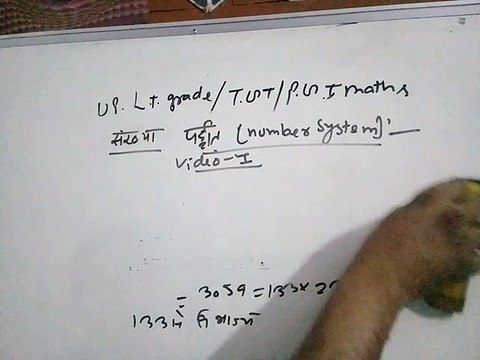 UP. L.T. grade/T.G.T/P.G.T maths
संख्या पद्धति (number System):-
Video-I
= 3059 = 133x
133